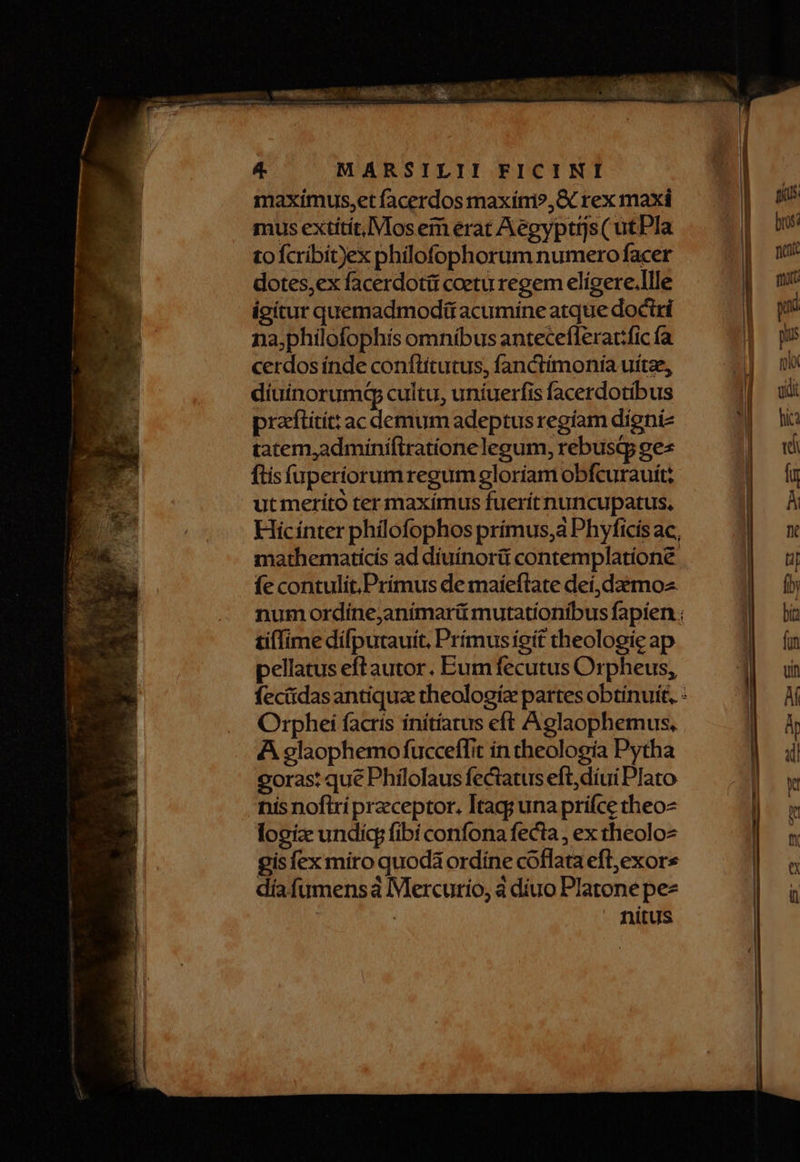 4 MARSILII FICINI
maximus,et ſacerdos maximꝰ,& rex maxi
mus extitit.Mos em̄ erat Aegyptijs(ut Pla
to ſcribit)ex philoſophorum numero ſacer
dotes,ex ſacerdotū cœtu regem eligere.Ille
igitur quemadmodū acumine atque doctri
na,philoſophis omnibus anteceſſerat:ſic ſa
cerdos inde conſtitutus, ſanctimonia uitæ,
diuinorumꝙ cultu, uniuerſis ſacerdotibus
præſtitit: ac demum adeptus regiam digni⸗
tatem,adminiſtratione legum, rebusꝙ ge⸗
ſtis ſuperiorum regum gloriam obſcurauit:
ut merito ter maximus fuerit nuncupatus.
Hic inter philoſophos primus,à Phyſicis ac,
mathematicis ad diuinorū contemplationē
ſe contulit.Primus de maieſtate dei,dæmo⸗
num ordine,animarū mutationibus ſapien
tiſſime diſputauit. Primus igit̃ theologię ap
pellatus eſt autor. Eum ſecutus Orpheus,
ſecūdas antiquæ theologiæ partes obtinuit.
Orphei ſacris initiatus eſt Aglaophemus.
Aglaophemo ſucceſſit in theologia Pytha
goras: quē Philolaus ſectatus eſt,diui Plato
nis noſtri præceptor. Itaqꝫ una priſcę theo⸗
logiæ undiqꝫ ſibi conſona ſecta, ex theolo⸗
gis ſex miro quodā ordine cōflata eſt,exor⸗
dia ſumens à Mercurio, à diuo Platone pe⸗
nitus